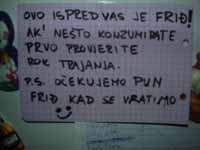 OVO ISPRED VAS JE FRIĐ!
AK' NEŠTO KONZUMIRATE
PRVO PROVJERITE
ROK TRAJANJA.
P.S. OČEKUJEMO PUN
FRIĐ KAD SE VRATIMO